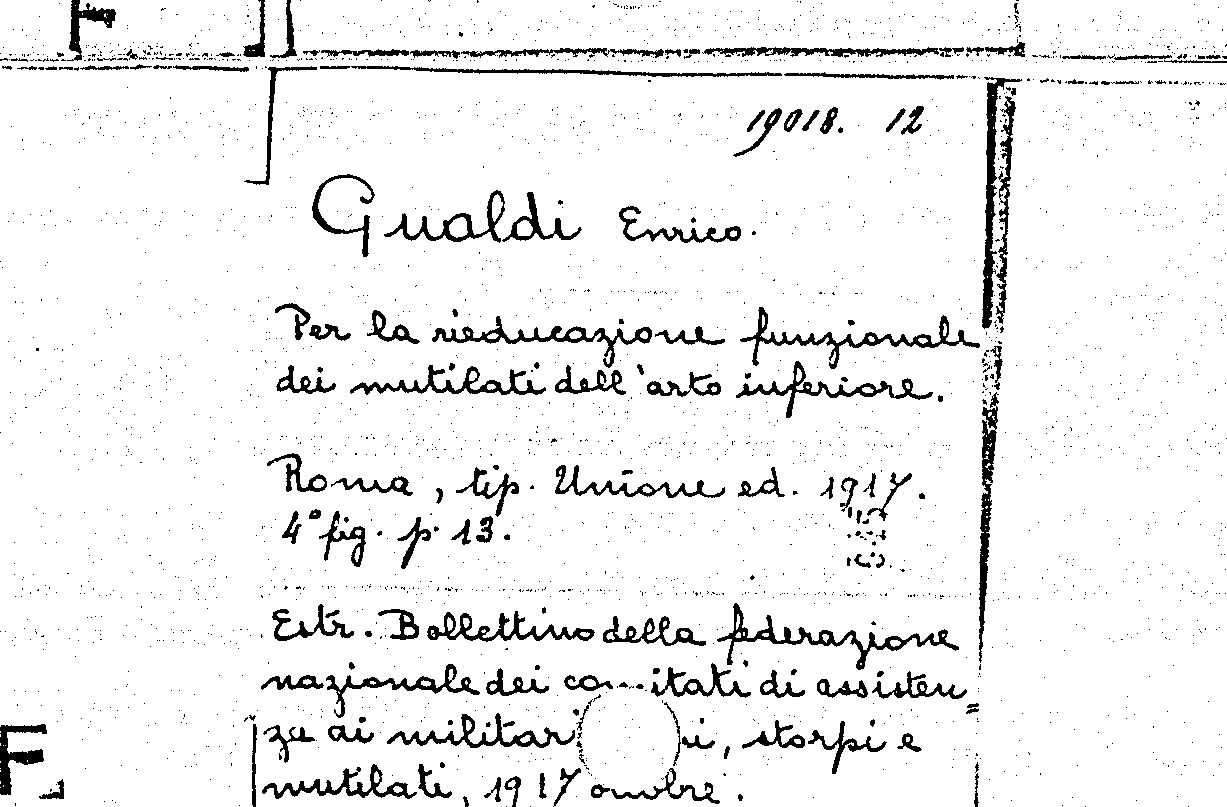 19018. 12
Gualdi Enrico.
Per la rieducazione funzionale
dei mutilati dell'arto inferiore.
Roma, tip. Unione ed. 1917.
4° fig. p. 13.
Estr. Bollettino della federazione
nazionale dei comitati di assisten=
za ai militari, storpi e
mutilati, 1917